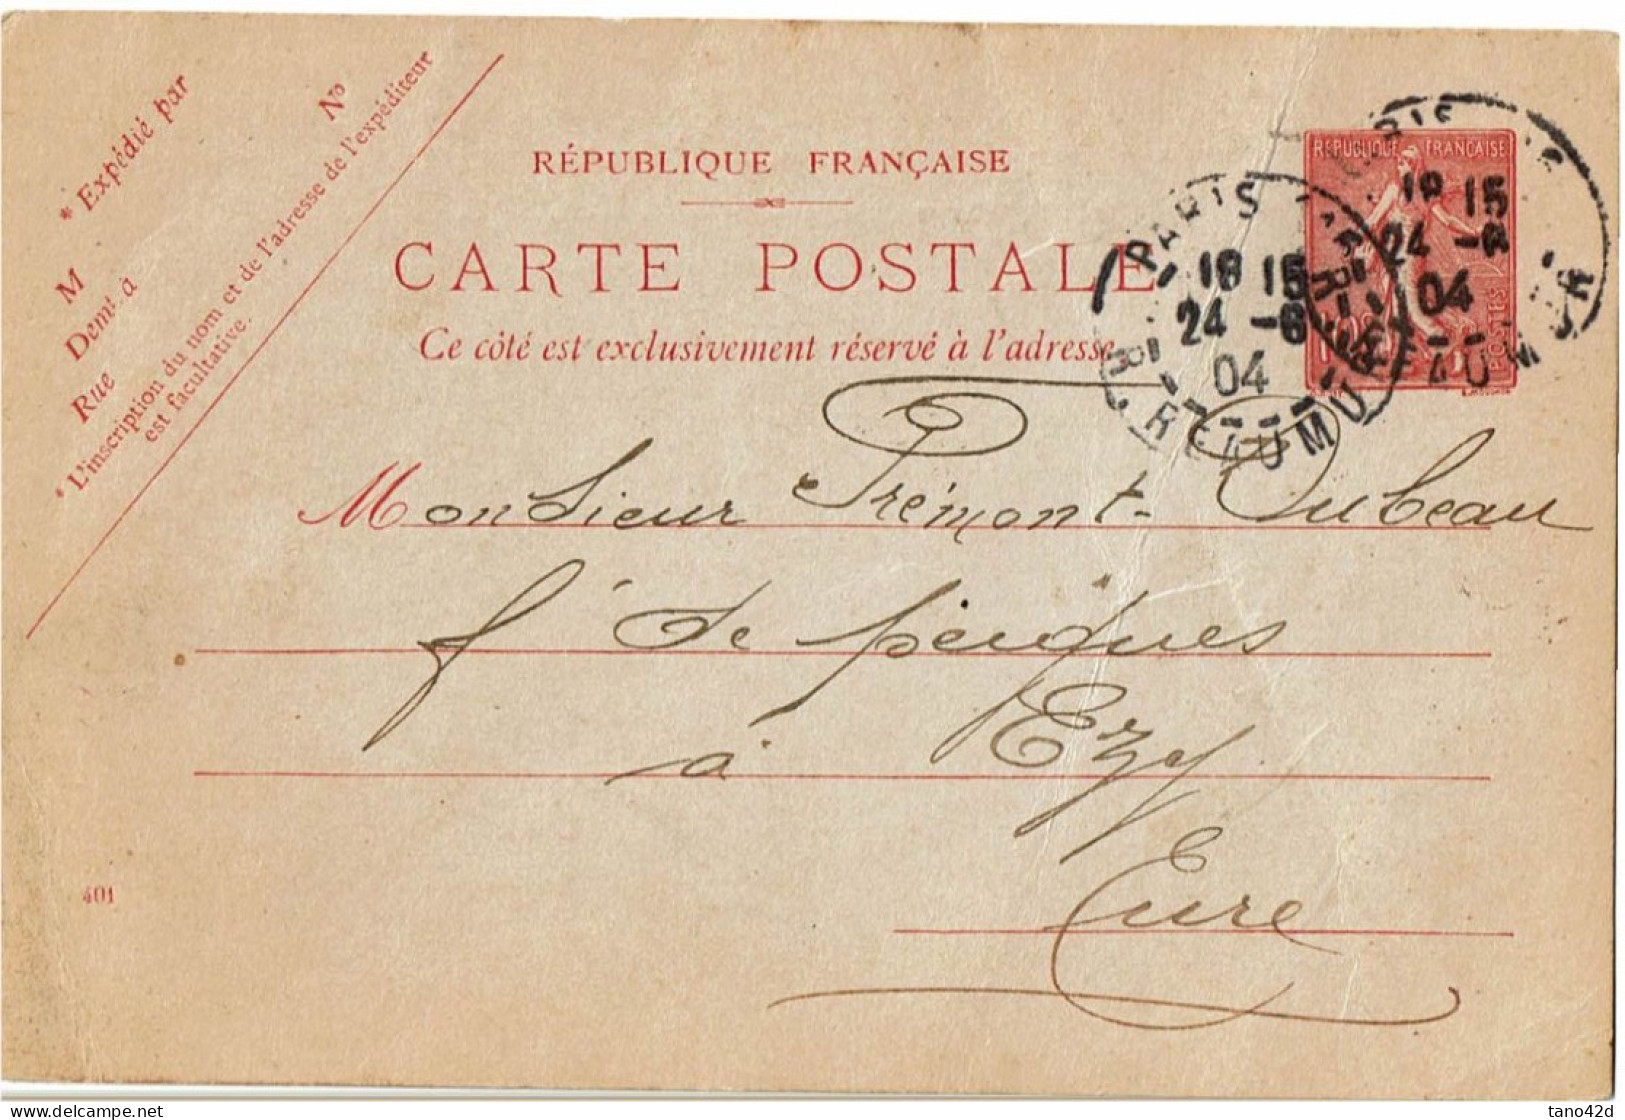 * Expédié par
M
Nº
Demt à
Rue
* L'inscription du nom et de l'adresse de l'expéditeur
est facultative.
RÉPUBLIQUE FRANÇAISE
CARTE POSTALE
Ce côté est exclusivement réservé à l'adresse
RÉPUBLIQUE FRANÇAISE
POSTES
PARIS
18 15
24 -6
04
R. REAUMUR
PARIS
18 15
24 -6
04
REAUMUR
Monsieur Prémont-Dubeau
ft de peignes
à Ezy
Eure
401
tano42d